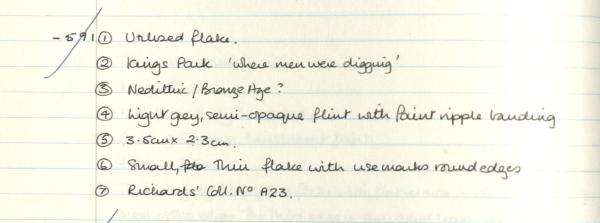 -591 ① Utilized flake.
② Kings Park 'where men were digging'
③ Neolithic / Bronze Age?
④ Light grey, semi-opaque flint with faint ripple banding
⑤ 3.5cm x 2.3cm.
⑥ Small, thin flake with use marks round edges
⑦ Richards' Coll. No A23.